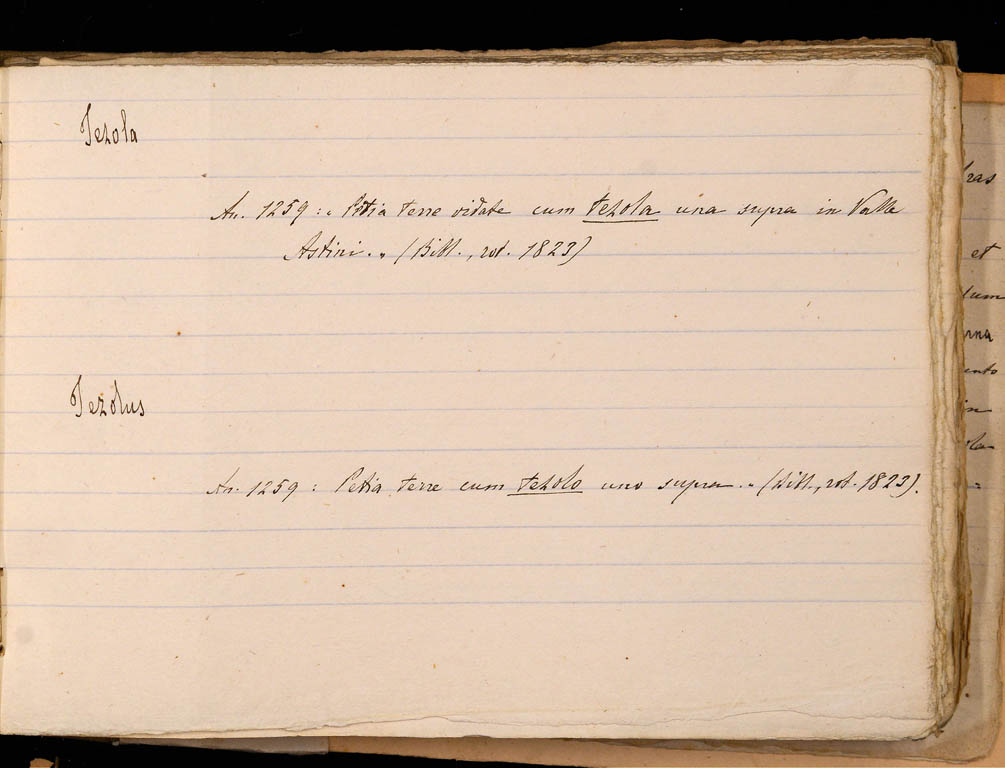 Tezola
An. 1259: « Petia terre vidate cum tezola una supra in Valle
Astini. » (Bibl., rot. 1823)
Tezolus
An. 1259: Petia terre cum tezolo uno supra. » (Bibl., rot. 1823).
ras
et
lum
rna
ento
in
la